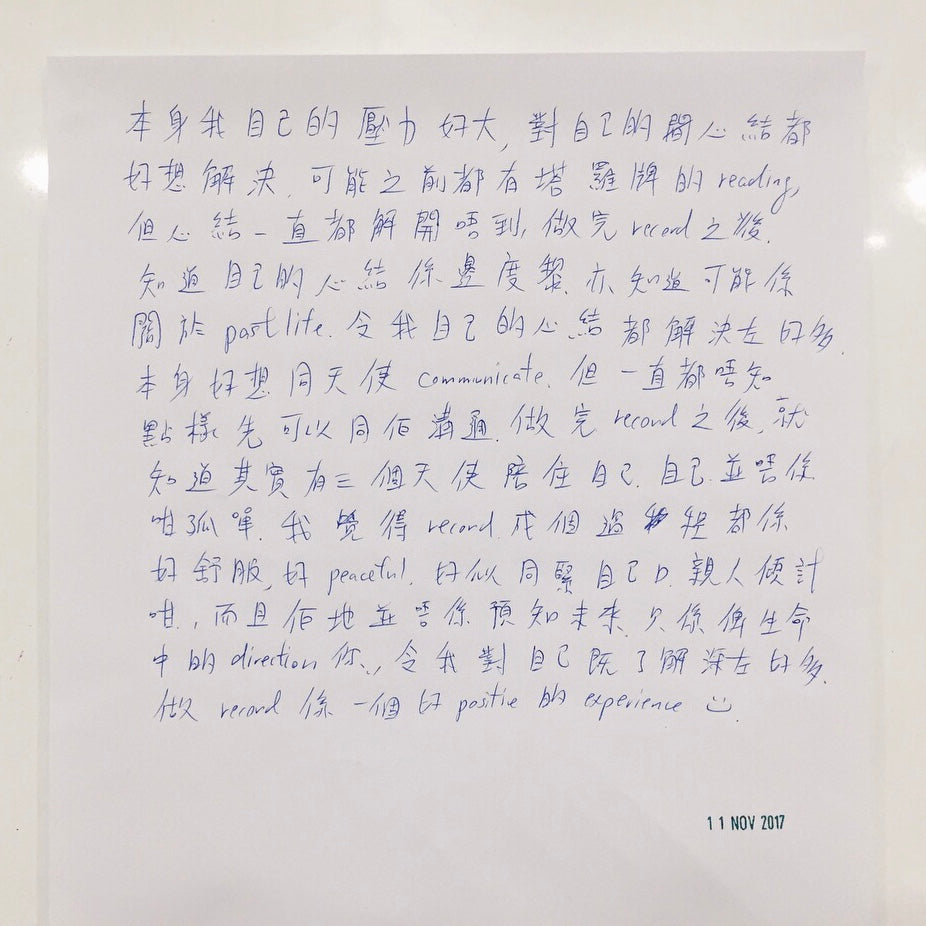 本身我自己的壓力好大, 對自己的開心結都
好想解決. 可能之前都有塔羅牌的reading,
但心結一直都解開唔到, 做完record之後.
知道自己的心結係邊度黎. 亦知道可能係
關於past life. 令我自己的心結都解決左好多.
本身好想同天使communicate. 但一直都唔知
點樣先可以同佢溝通. 做完record之後, 就
知道其實有三個天使陪住自己. 自己並唔係
咁孤單. 我覺得record成個過程都係
好舒服, 好peaceful. 好似同緊自己D親人傾計
咁, 而且佢地並唔係預知未來. 只係俾生命
中的direction你, 令我對自己既了解深左好多.
做record係一個好positive的experience
11 NOV 2017